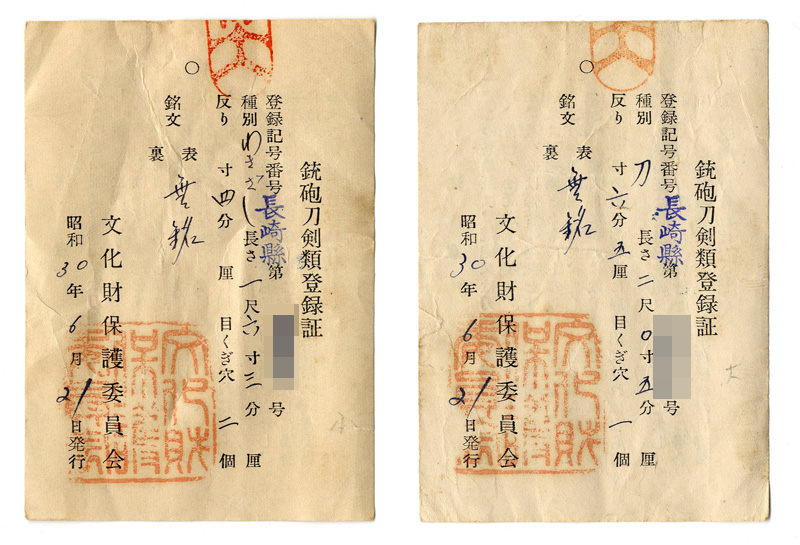 銃砲刀剣類登録証
登録記号番号 長崎縣 第 号
種別 わきざし 長さ 一尺六寸三分 厘
反り 寸四分 厘 目くぎ穴 二個
銘文 表 無銘
裏
文化財保護委員会
昭和30年6月21日発行
銃砲刀剣類登録証
登録記号番号 長崎縣 第 号
種別 刀 長さ 二尺0寸五分 厘
反り 寸六分五厘 目くぎ穴 一個
銘文 表 無銘
裏
文化財保護委員会
昭和30年6月21日発行